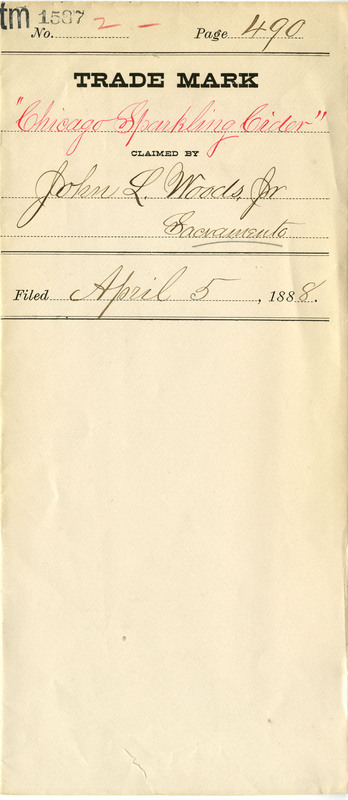 tm 1587
No. 2 - Page 490
TRADE MARK
"Chicago Sparkling Cider"
CLAIMED BY
John L. Woods, Jr
Sacramento
Filed April 5, 1888.